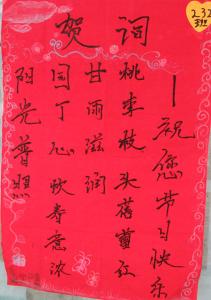 232班
贺词
阳光普照
园丁心欢春意浓
甘雨滋润
桃李枝头蓓蕾红
—祝您节日快乐